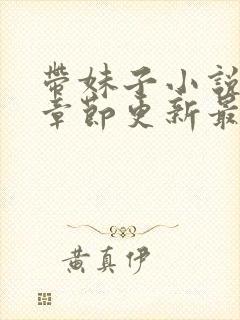 帶妹子小說
章節更新最
黃真伊